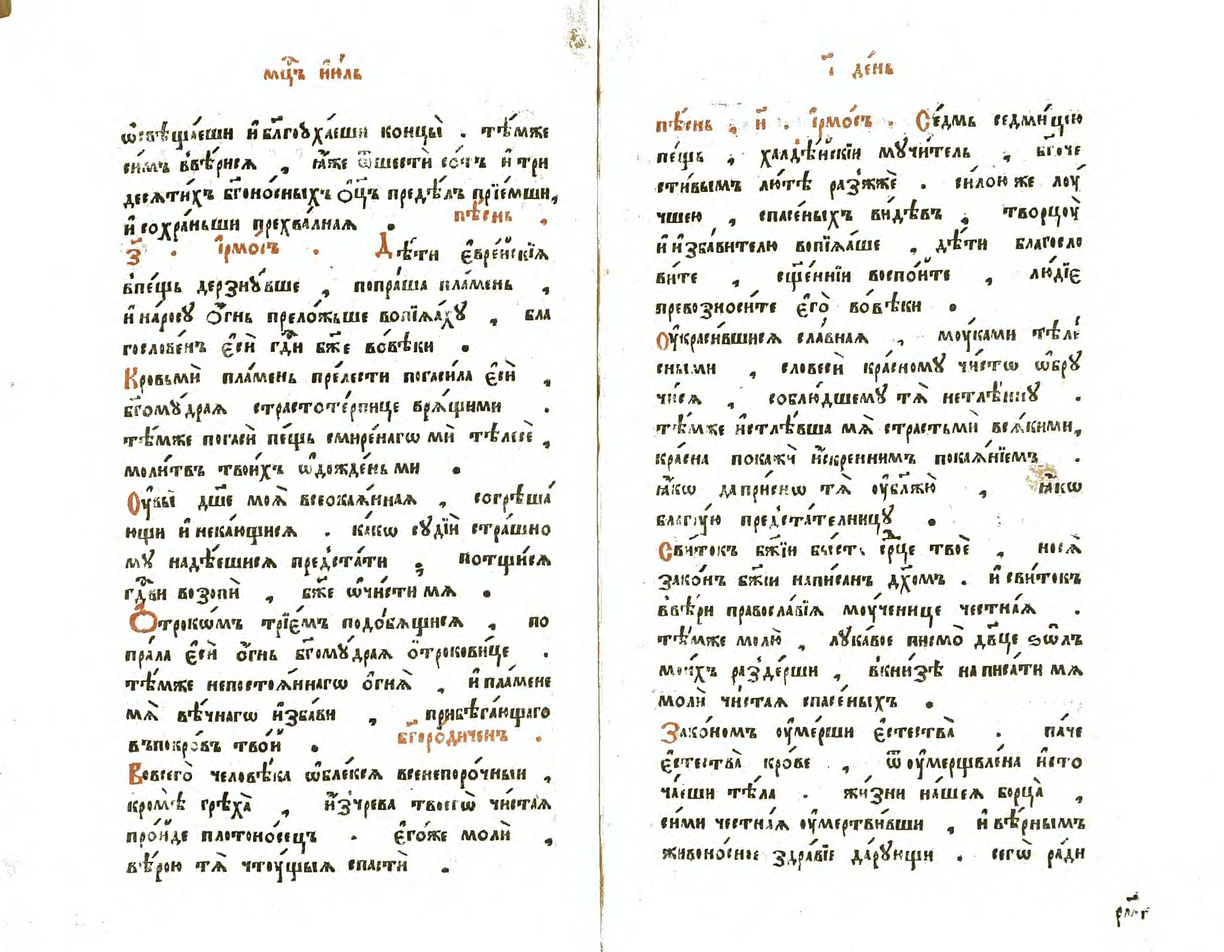 мц҃ъ і҆ю́ль
ѡ҆свѣща́еши и҆ бл҃гоꙋха́еши концы̀ . тѣ́мже
си́мъ ввѣ́рися , ꙗ҆́же ѿ шестѝ со́тъ и҆ три
десѧти́хъ бг҃оно́сныхъ ѻ҆ц҃ъ предѣ́лъ прїе́мши,
и҆ сохра́ньши прехва́лная . пѣ́снь .
з҃ . і҆рмо́съ . Дѣ́ти є҆вре́йскїѧ
впе́щь дерзнꙋ́вше , попра́ша пла́мень ,
и҆ на́росꙋ ѻ҆́гнь прело́жьше вопїѧ́хꙋ , бла
гослове́нъ є҆сѝ гдⷭ҇и бж҃е во́вѣки .
Кровьмѝ пла́мень пре́лести погаси́ла є҆сѝ ,
бг҃омꙋ́драѧ страстоте́рпице врѧ́щими .
тѣ́мже погасѝ пе́щь смире́нагѡ мѝ тѣ́лесѐ ,
моли́твъ твои́хъ ѡ҆дожде́ньми .
Оу҆вы̀ дш҃е моѧ̀ всеокаѧ́ннаѧ , согрѣша́
ющи и҆ нека́ющисѧ . ка́кѡ сꙋдїѝ стра́шно
мꙋ надѣ́ешисѧ предста́ти ; потщи́сѧ
гдⷭ҇ви возопѝ , бж҃е ѡ҆чи́сти мѧ .
Ѻ҆трокѡ́мъ трїе́мъ подо́бѧщисѧ , по
пра́ла є҆сѝ ѻ҆́гнь бг҃омꙋ́драѧ ѻ҆трокови́це .
тѣ́мже непостоѧ́ннагѡ ѻ҆гнѧ̀ , и҆ пла́мене
мѧ̀ вѣ́чнагѡ и҆зба́ви , прибѣга́ющаго
въпокро́въ тво́й . бг҃оро́диченъ .
Вовсего̀ человѣ́ка ѡ҆блексѧ всенепоро́чныи ,
кромѣ̀ грѣха̀ , и҆з̾чре́ва твоегѡ̀ чи́стаѧ
про́йде плотоно́сецъ . є҆го́же молѝ ,
вѣ́рою тѧ̀ чтоу́щыѧ спастѝ .
і҃ де́нь
пѣ́снь . и҃ . і҆рмо́съ . Се́дмь седми́цею
пе́щь , халдѣ́йскїи мꙋчи́тель , бг҃оче
сти́вымъ лю́тѣ раз̾жжѐ . си́лою же лоу́
чшею , спасе́ныхъ ви́дѣвъ , творцоу̀
и҆ и҆зба́вителю вопїѧ́ше , дѣ́ти благосло
ви́те , сщ҃е́ннїи воспо́йте , лю́дїе
превозноси́те є҆го̀ во́вѣки .
Оу҆краси́вшисѧ сла́внаѧ , моу́ками тѣле́
сными , словесѝ кра́сномꙋ чи́стѡ ѡ҆брꙋ
чи́сѧ , соблю́дшемꙋ тѧ̀ нетлѣ́ннꙋ .
тѣ́мже и҆стлѣ́вша мѧ̀ страстьмѝ всѧ́кими,
кра́сна покажѝ и҆́скреннимъ покаѧ́нїемъ .
ꙗ҆́кѡ да при́снѡ тѧ̀ оу҆блажю̀ , ꙗ҆́кѡ
благꙋ́ю предста́телницꙋ .
Сви́токъ бж҃їи бы́сть срⷣце твоѐ , носѧ̀
зако́нъ бж҃їи напи́санъ дх҃омъ . и҆ сви́токъ
ввѣ́ри правосла́вїѧ моу́ченице честна́ѧ .
тѣ́мже молю̀ , лꙋка́вое писмо̀ дв҃це ѕѡ́лъ
мои́хъ раз̾де́рши , вкни́зѣ написа́ти мѧ
молѝ чи́стаѧ спасе́ныхъ .
Зако́номъ оу҆ме́рши є҆стества̀ . па́че
є҆стества̀ кро́ве , ѿ оу҆мерщвле́на и҆сто
ча́еши тѣ́ла . жи́зни на́шеѧ борца̀ ,
си́ми честна́ѧ оу҆мертви́вши , и҆ вѣ́рнымъ
живоно́сное здра́вїе да́рꙋющи . сегѡ̀ ра́ди